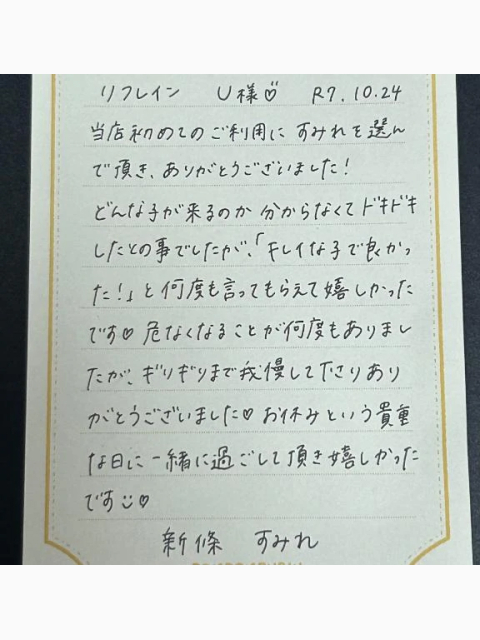 リフレイン U様♡ R7.10.24
当店初めてのご利用に すみれを選ん
で頂き、ありがとうございました！
どんな子が来るのか 分からなくて ドキドキ
したとの事でしたが、「キレイな子で良かっ
た！」と何度も言ってもらえて嬉しかった
です♡ 危なくなることが何度もありまし
たが、ギリギリまで我慢して下さりあり
がとうございました♡ お休みという貴重
な日に一緒に過ごして頂き嬉しかった
です☺♡
新條 すみれ